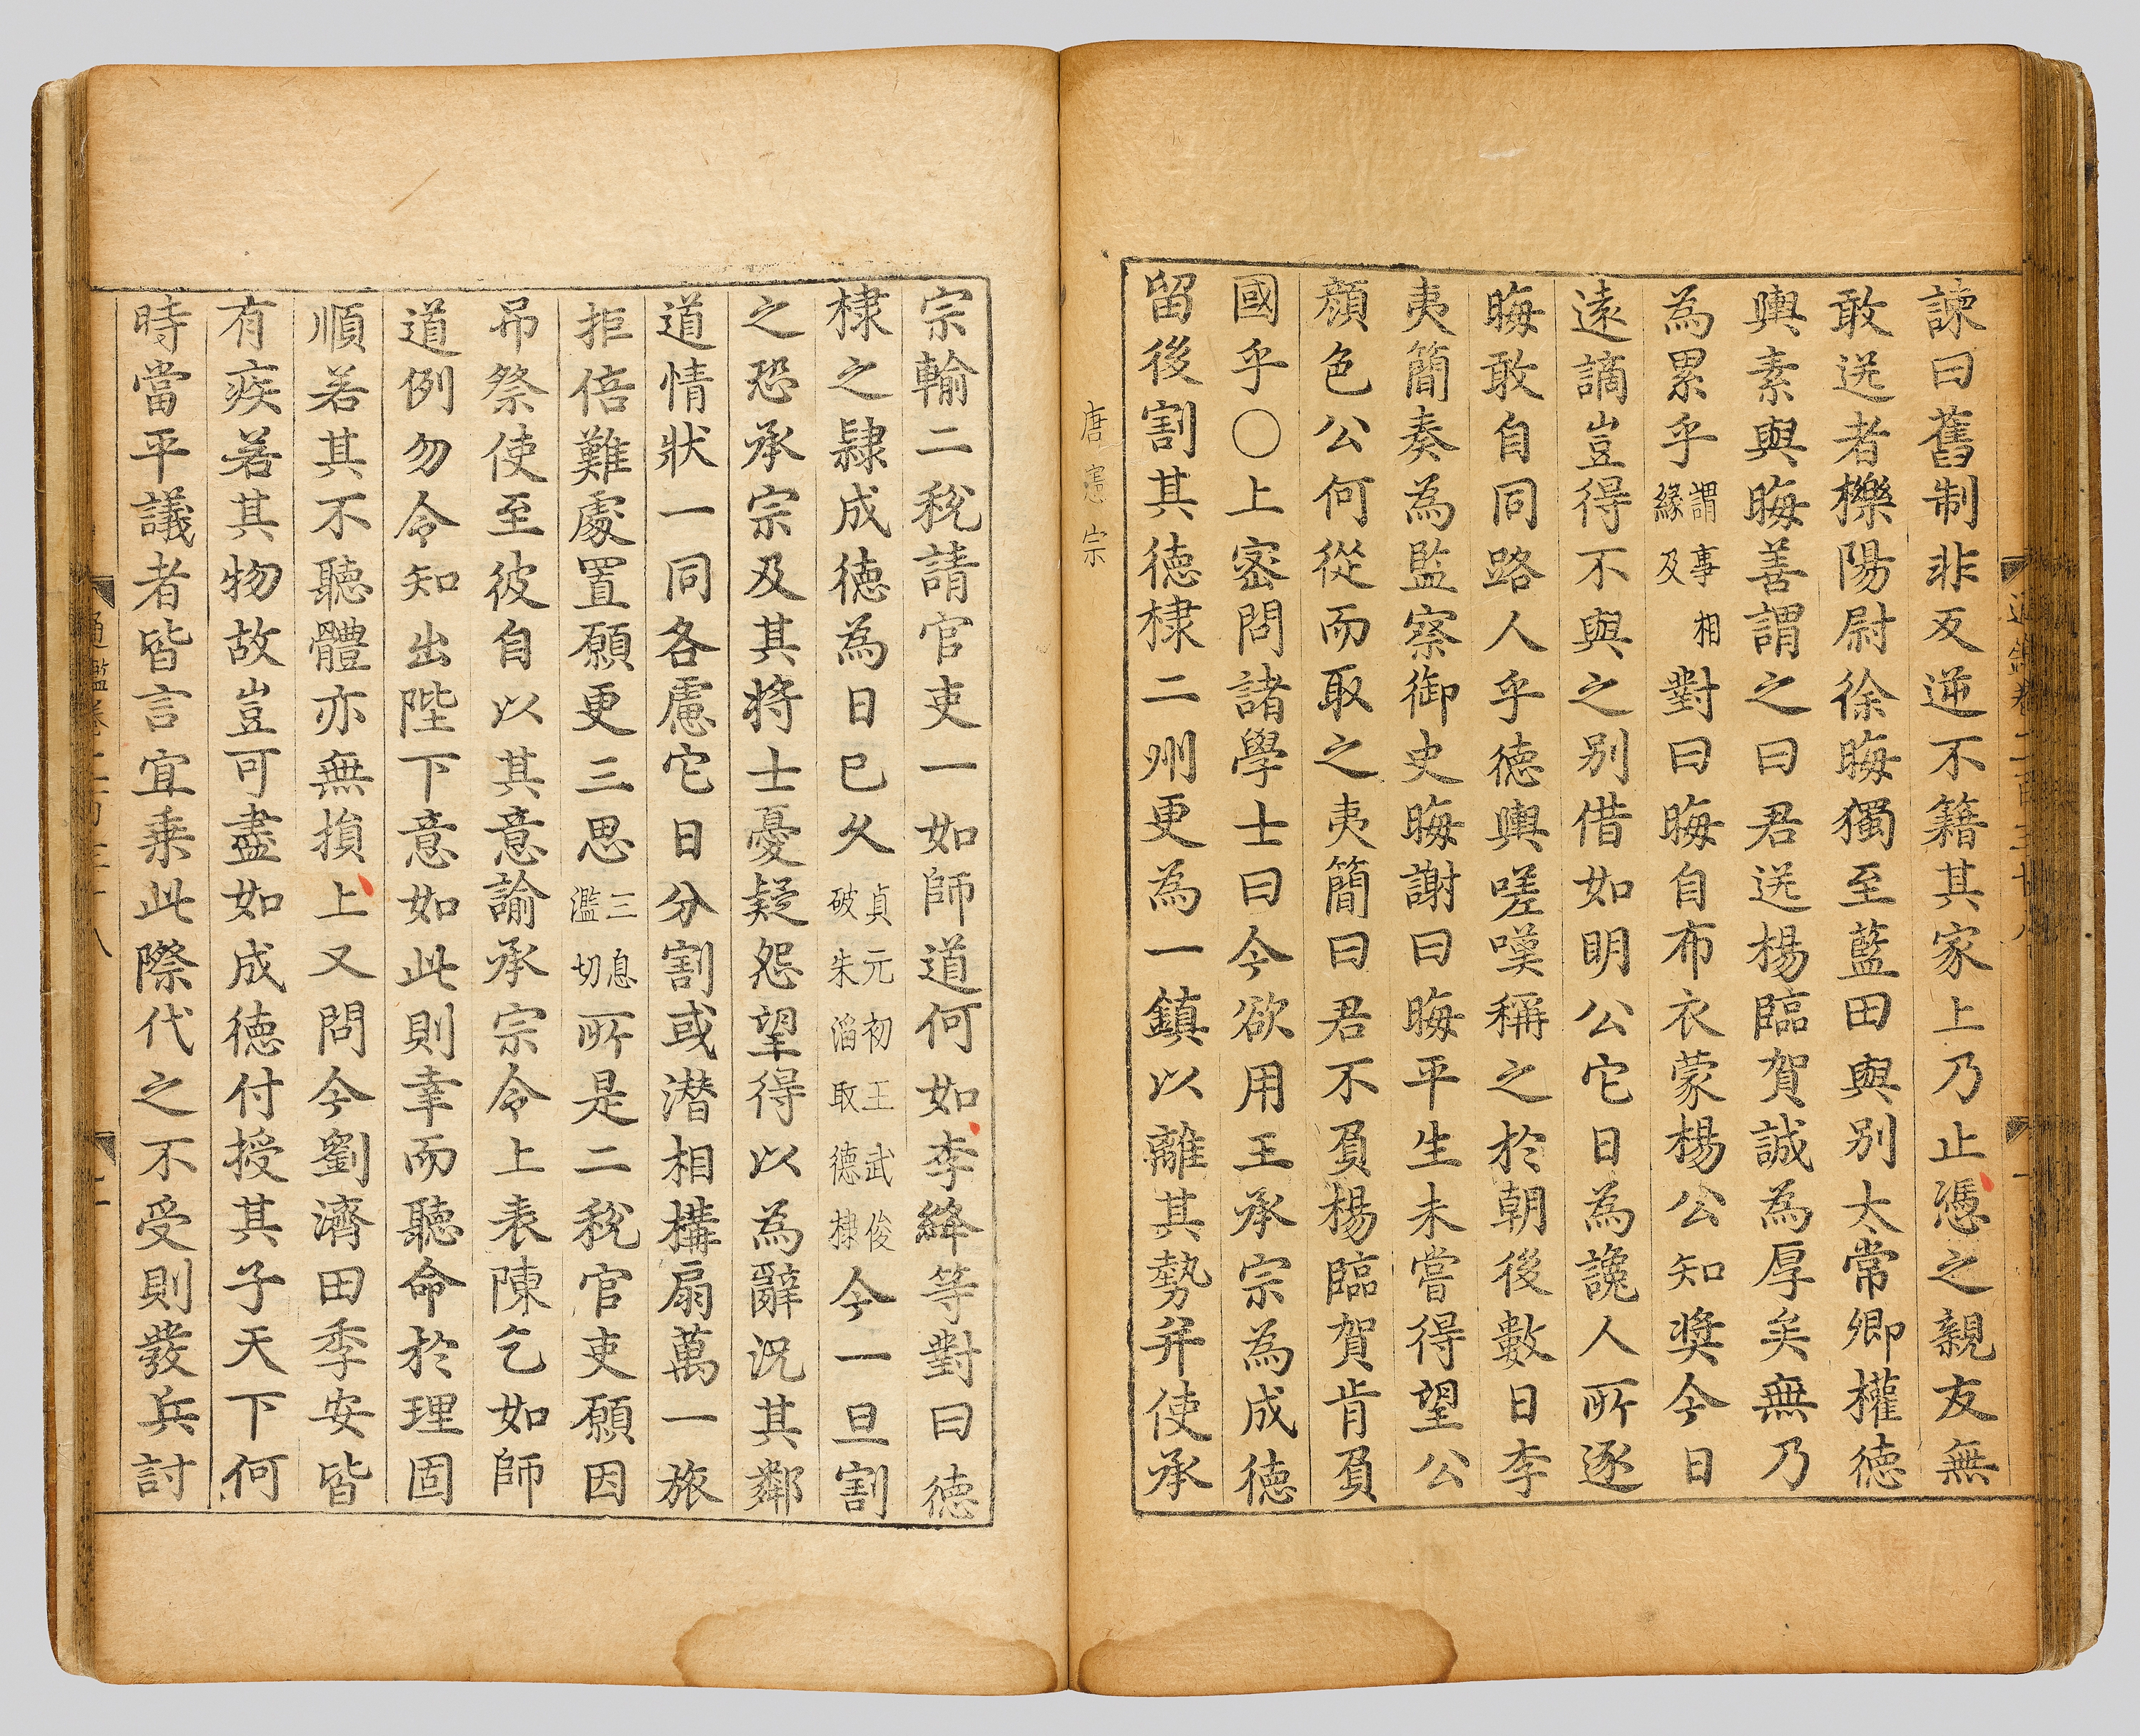 諫曰舊制非反逆不籍其家上乃止憑之親友無
敢送者櫟陽尉徐晦獨至藍田與別太常卿權德
輿素與晦善謂之曰君送楊臨賀誠為厚矣無乃
為累乎謂事相緣及對曰晦自布衣蒙楊公知奬今日
遠謫豈得不與之別借如明公它日為讒人所逐
晦敢自同路人乎德輿嗟嘆稱之於朝後數日李
夷簡奏為監察御史晦謝曰晦平生未嘗得望公
顏色公何從而取之夷簡曰君不負楊臨賀肯負
國乎〇上密問諸學士曰今欲用王承宗為成德
留後割其德棣二州更為一鎮以離其勢并使承
唐憲宗
宗輸二稅請官吏一如師道何如李絳等對曰德
棣之隸成德為日已久貞元初王武俊破朱滔取德棣今一旦割
之恐承宗及其將士憂疑怨望得以為辭況其鄰
道情狀一同各慮它日分割或潛相構扇萬一旅
拒倍難處置願更三思三息濫切所是二稅官吏願因
吊祭使至彼自以其意諭承宗令上表陳乞如師
道例勿令知出陛下意如此則幸而聽命於理固
順若其不聽體亦無損上又問今劉濟田季安皆
有疾若其物故豈可盡如成德付授其子天下何
時當平議者皆言宜乘此際代之不受則發兵討
通鑑卷二百三十八
二